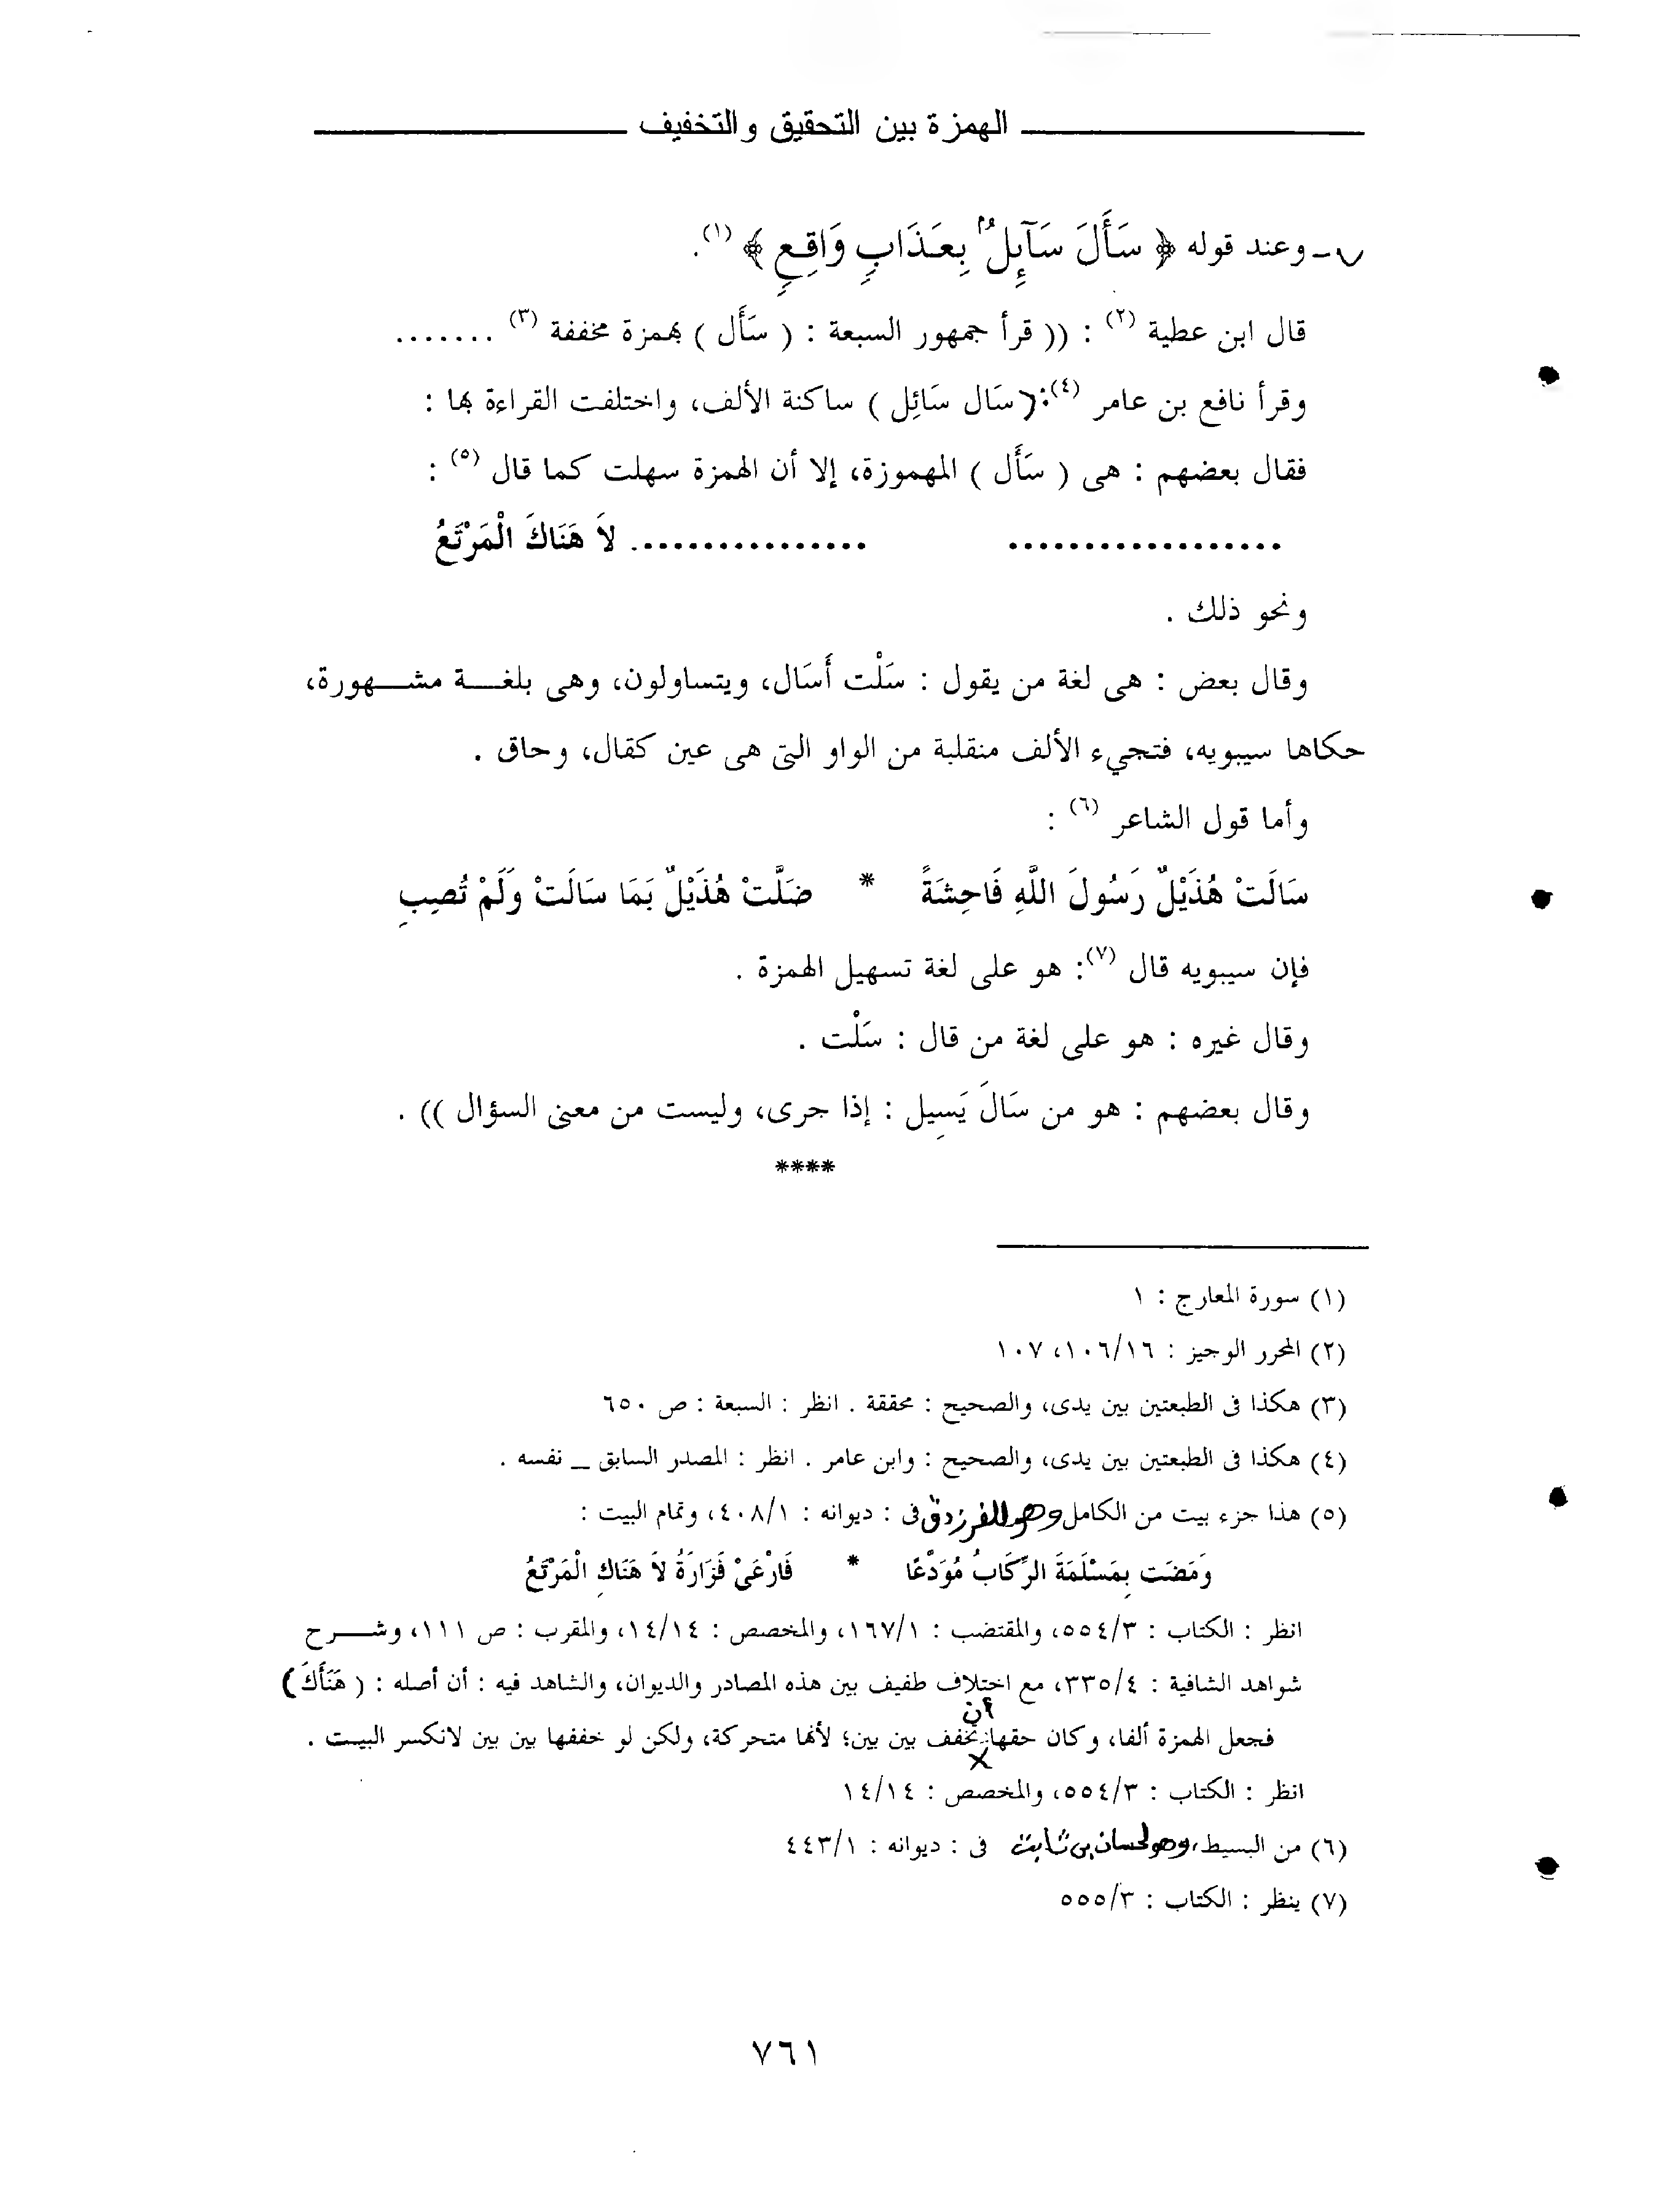 الهمزة بين التحقيق والتخفيف
٧ـ وعند قوله ﴿ سَأَلَ سَآئِلٌ بِعَذَابٍ وَاقِعٍ ﴾ (١).
قال ابن عطية (٢) : (( قرأ جمهور السبعة : ( سَأَل ) بهمزة مخففة (٣) .......
وقرأ نافع بن عامر (٤): ( سَال سَائِل ) ساكنة الألف، واختلفت القراءة بها :
فقال بعضهم : هى ( سَأَل ) المهموزة، إلا أن الهمزة سهلت كما قال (٥) :
.................. ................ لاَ هَنَاكَ الْمَرْتَعُ
ونحو ذلك .
وقال بعض : هى لغة من يقول : سَلْت أَسَال، ويتساولون، وهى بلغة مشهورة،
حكاها سيبويه، فتجيء الألف منقلبة من الواو التى هى عين كقال، وحاق .
وأما قول الشاعر (٦) :
سَالَتْ هُذَيْلٌ رَسُولَ اللَّهِ فَاحِشَةً * ضَلَّتْ هُذَيْلٌ بَمَا سَالَتْ وَلَمْ تُصِبِ
فإن سيبويه قال (٧): هو على لغة تسهيل الهمزة .
وقال غيره : هو على لغة من قال : سَلْت .
وقال بعضهم : هو من سَالَ يَسِيل : إذا جرى، وليست من معنى السؤال )) .
****
(١) سورة المعارج : ١
(٢) المحرر الوجيز : ١٠٦/١٦، ١٠٧
(٣) هكذا فى الطبعتين بين يدى، والصحيح : محققة . انظر : السبعة : ص ٦٥٠
(٤) هكذا فى الطبعتين بين يدى، والصحيح : وابن عامر . انظر : المصدر السابق ــ نفسه .
(٥) هذا جزء بيت من الكامل وهو للفرزدق فى : ديوانه : ٤٠٨/١، وتمام البيت :
وَمَضَت بِمَسْلَمَةَ الرِّكَابُ مُوَدْعًا * فَارْعَىْ فَزَارَةُ لاَ هَنَاكِ الْمَرْتَعُ
انظر : الكتاب : ٥٥٤/٣، والمقتضب : ١٦٧/١، والمخصص : ١٤/١٤، والمقرب : ص ١١١، وشرح
شواهد الشافية : ٣٣٥/٤، مع اختلاف طفيف بين هذه المصادر والديوان، والشاهد فيه : أن أصله : ( هَنَأَكَ )
فجعل الهمزة ألفا، وكان حقها أن تخفف بين بين؛ لأنها متحركة، ولكن لو خففها بين بين لانكسر البيت .
انظر : الكتاب : ٥٥٤/٣، والمخصص : ١٤/١٤
(٦) من البسيط، وهو لحسان بن ثابت فى : ديوانه : ٤٤٣/١
(٧) ينظر : الكتاب : ٥٥٥/٣
٧٦١